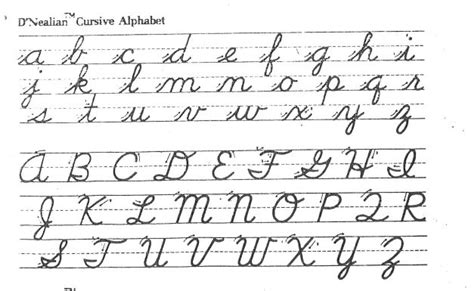 D'Nealian™ Cursive Alphabet
a b c d e f g h i
j k l m n o p q r
s t u v w x y z
A B C D E F G H I
J K L M N O P Q R
S T U V W X Y Z